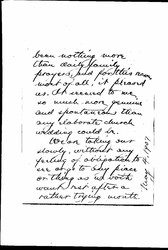 been nothing more
than daily family
prayers, and for this reason
most of all, it pleased
us. It seemed to me
so much more genuine
and spontaneous than
any elaborate church
wedding could be.
We are taking our
slowly, without any
feeling of obligation to
see or go to any place
or thing as we both
want rest after a
rather trying month
May 4, 1907